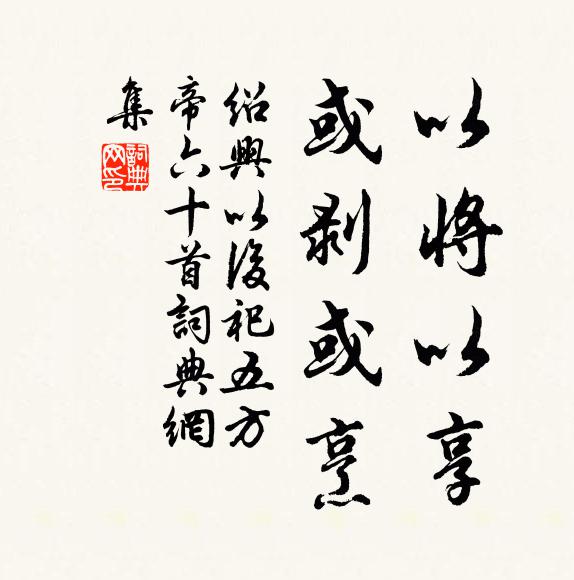 以將以享
或剥或烹
紹興以後祀五方
帝六十首詞典網
集
詞典网印